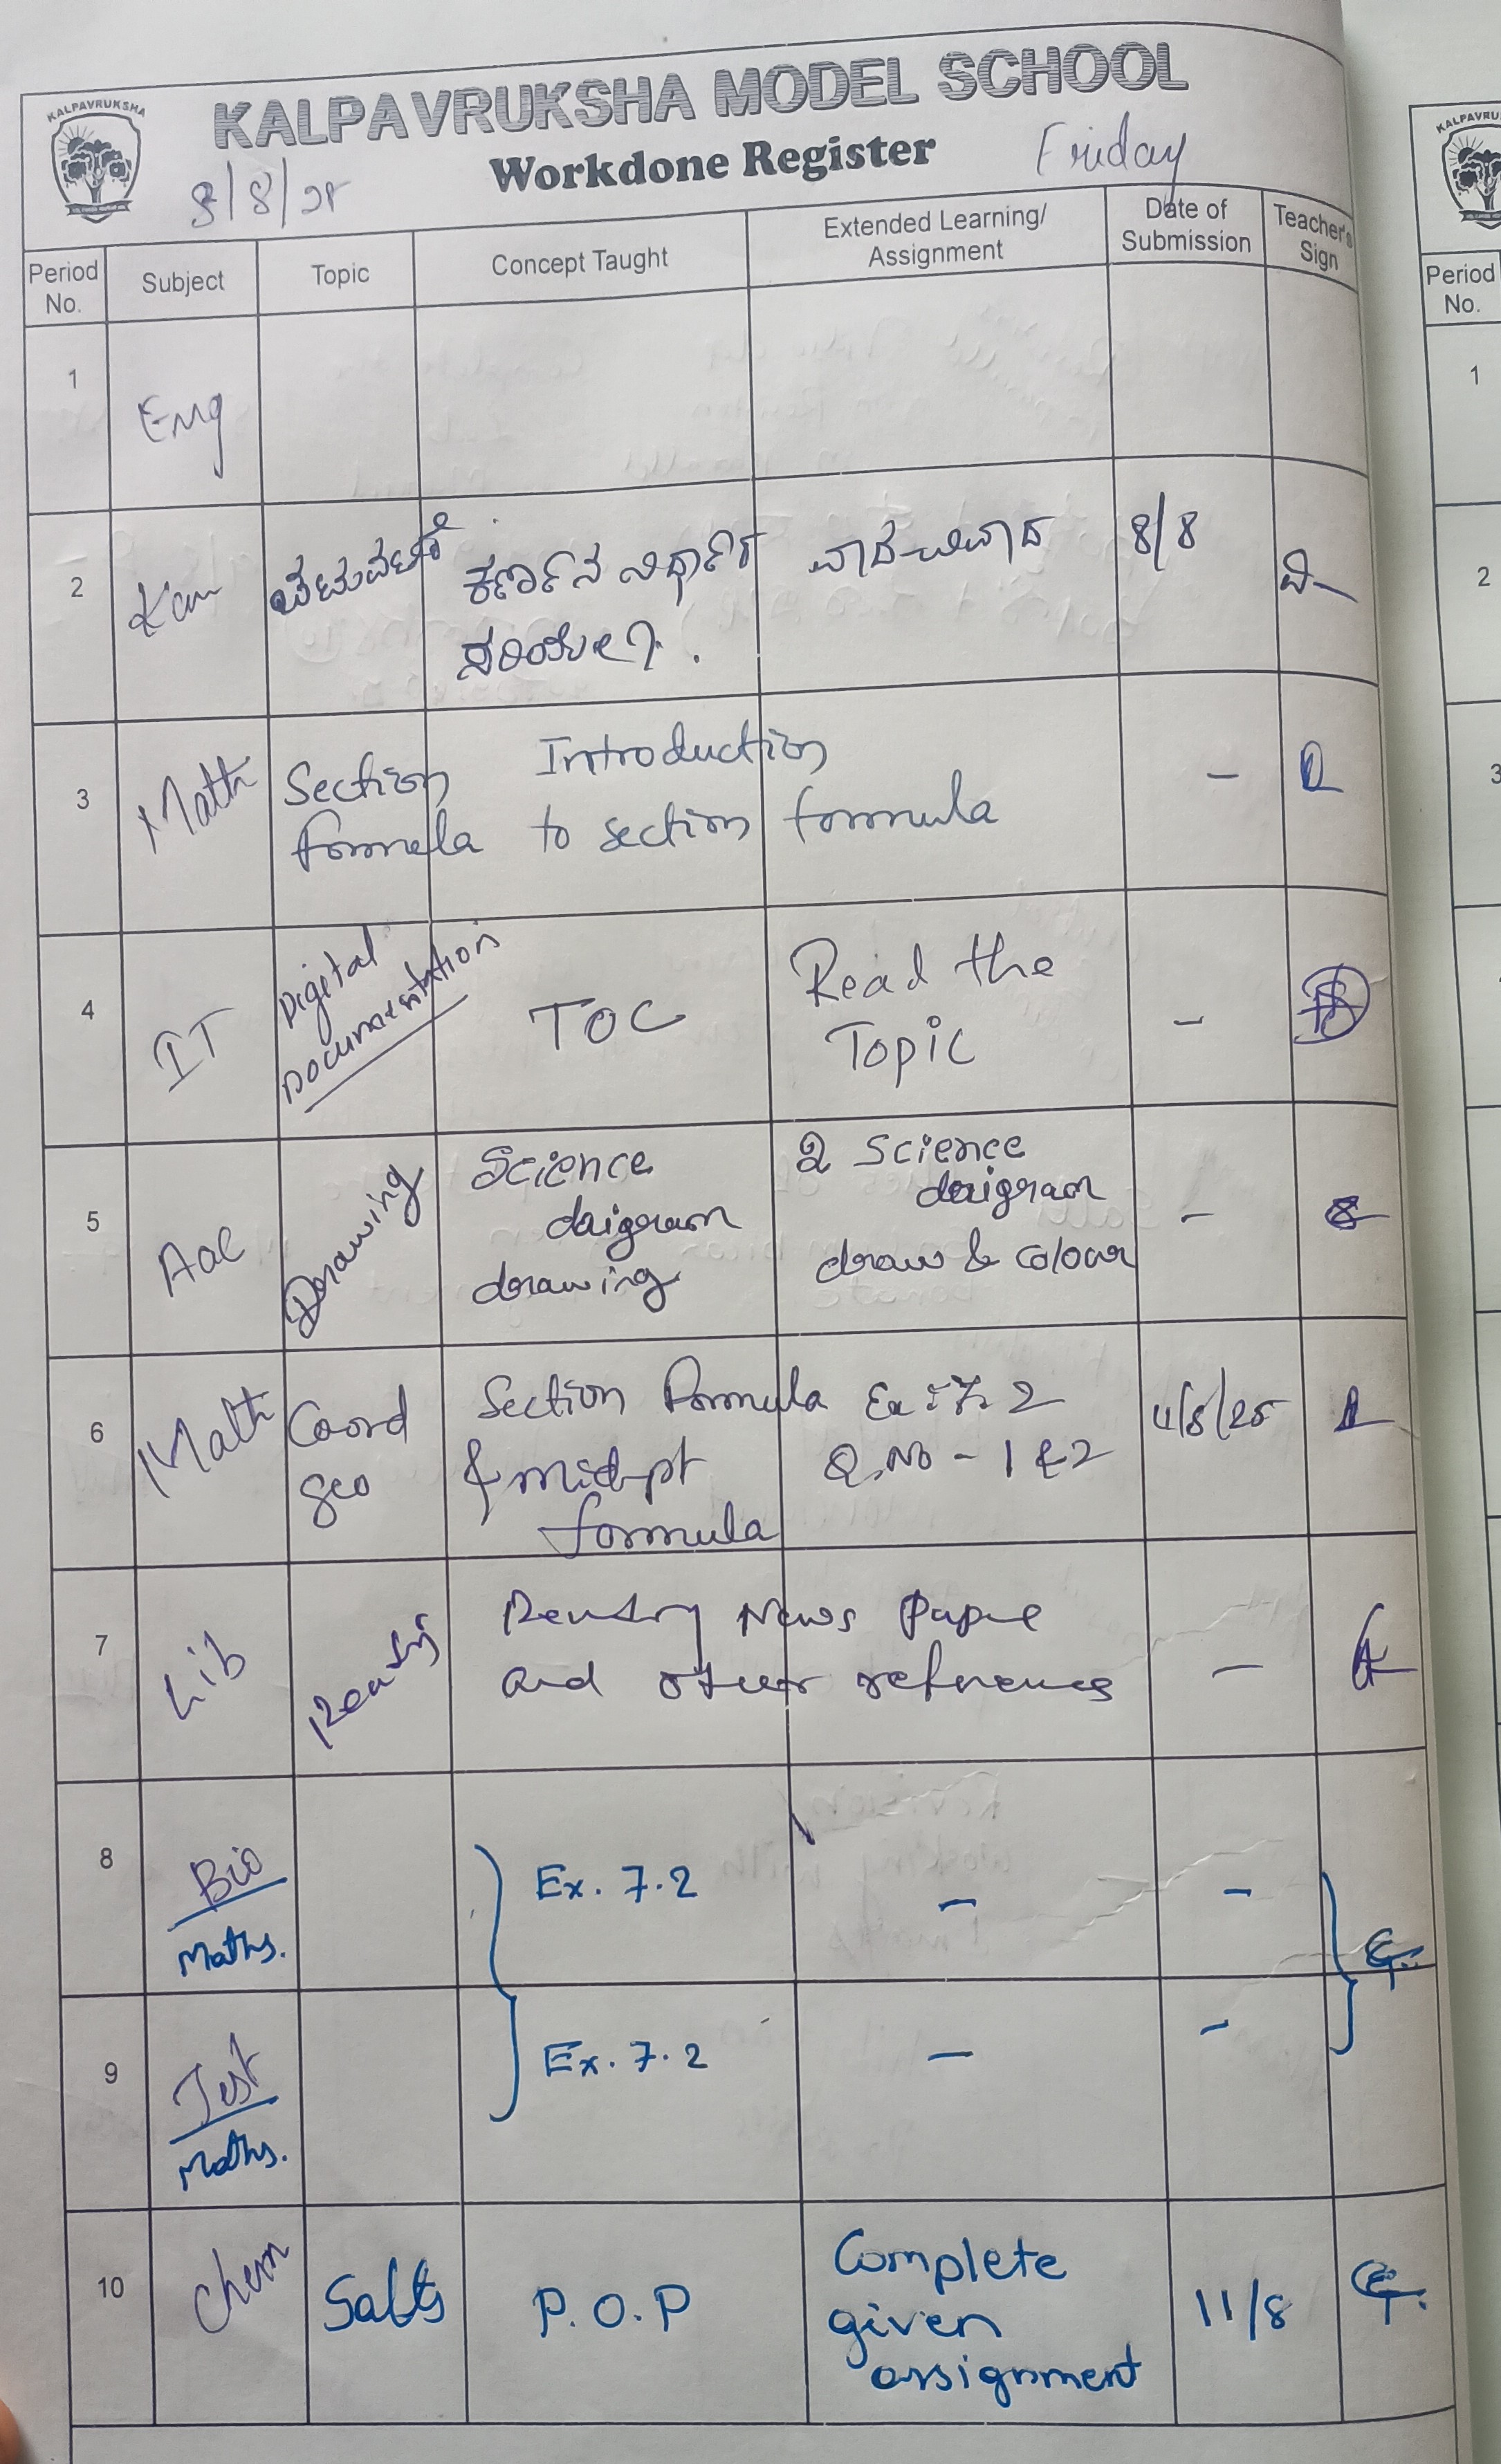 KALPAVRUKSHA
KALPAVRUKSHA MODEL SCHOOL
Workdone Register
8/8/25
Friday
Period No.
Subject
Topic
Concept Taught
Extended Learning/
Assignment
Date of
Submission
Teacher's
Sign
1
Eng
2
Kan
ಕರ್ಣನ ನಿರ್ಧಾರ
ಸರಿಯೇ?.
ವಾದ-ವಿವಾದ
8/8
3
Math
Section
formula
Introduction
to section formula
-
4
IT
Digital
Documentation
TOC
Read the
Topic
-
5
Aae
Drawing
Science
daigram
drawing
2 Science
daigram
draw & colour
-
6
Math
Coord
geo
Section formula
& midpt
formula
Ex: 7.2
Q.No - 1 & 2
11/8/25
7
Lib
Reading
Reading News Paper
and other references
-
8
Bio
Maths.
Ex. 7.2
-
-
9
Test
Maths.
Ex. 7.2
-
-
10
Chem
Salts
P.O.P
Complete
given
assignment
11/8
KALPAVRU
Period
No.
1
2
3